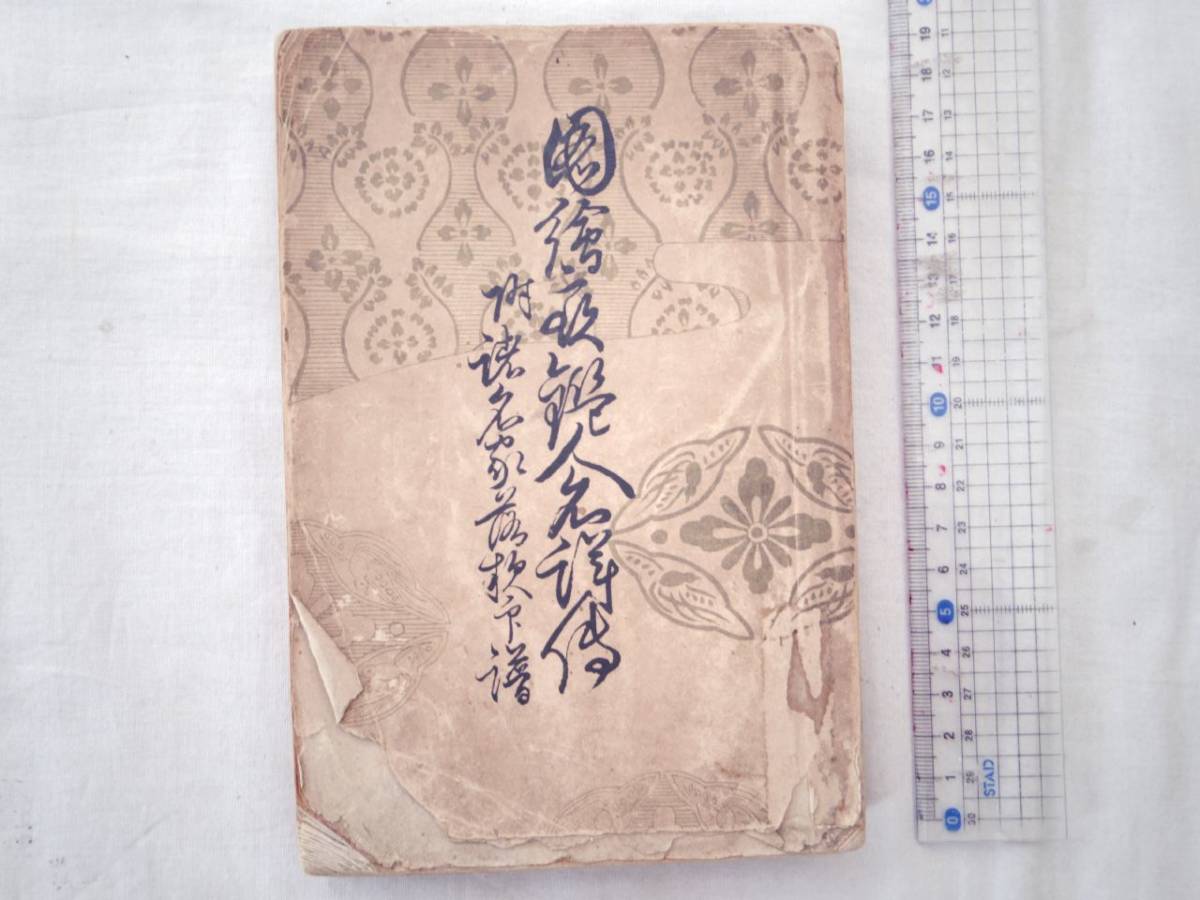 圖繪寶鑑人名詳傳
附諸名家落款印譜
19 18 17 16 15 14 13 12 11 10 9 8 7 6 5 4 3 2 1 0
11 12 13 14 15 16 17 18 19 20 21 22 23 24 25 26 27 28 29 30
STAD